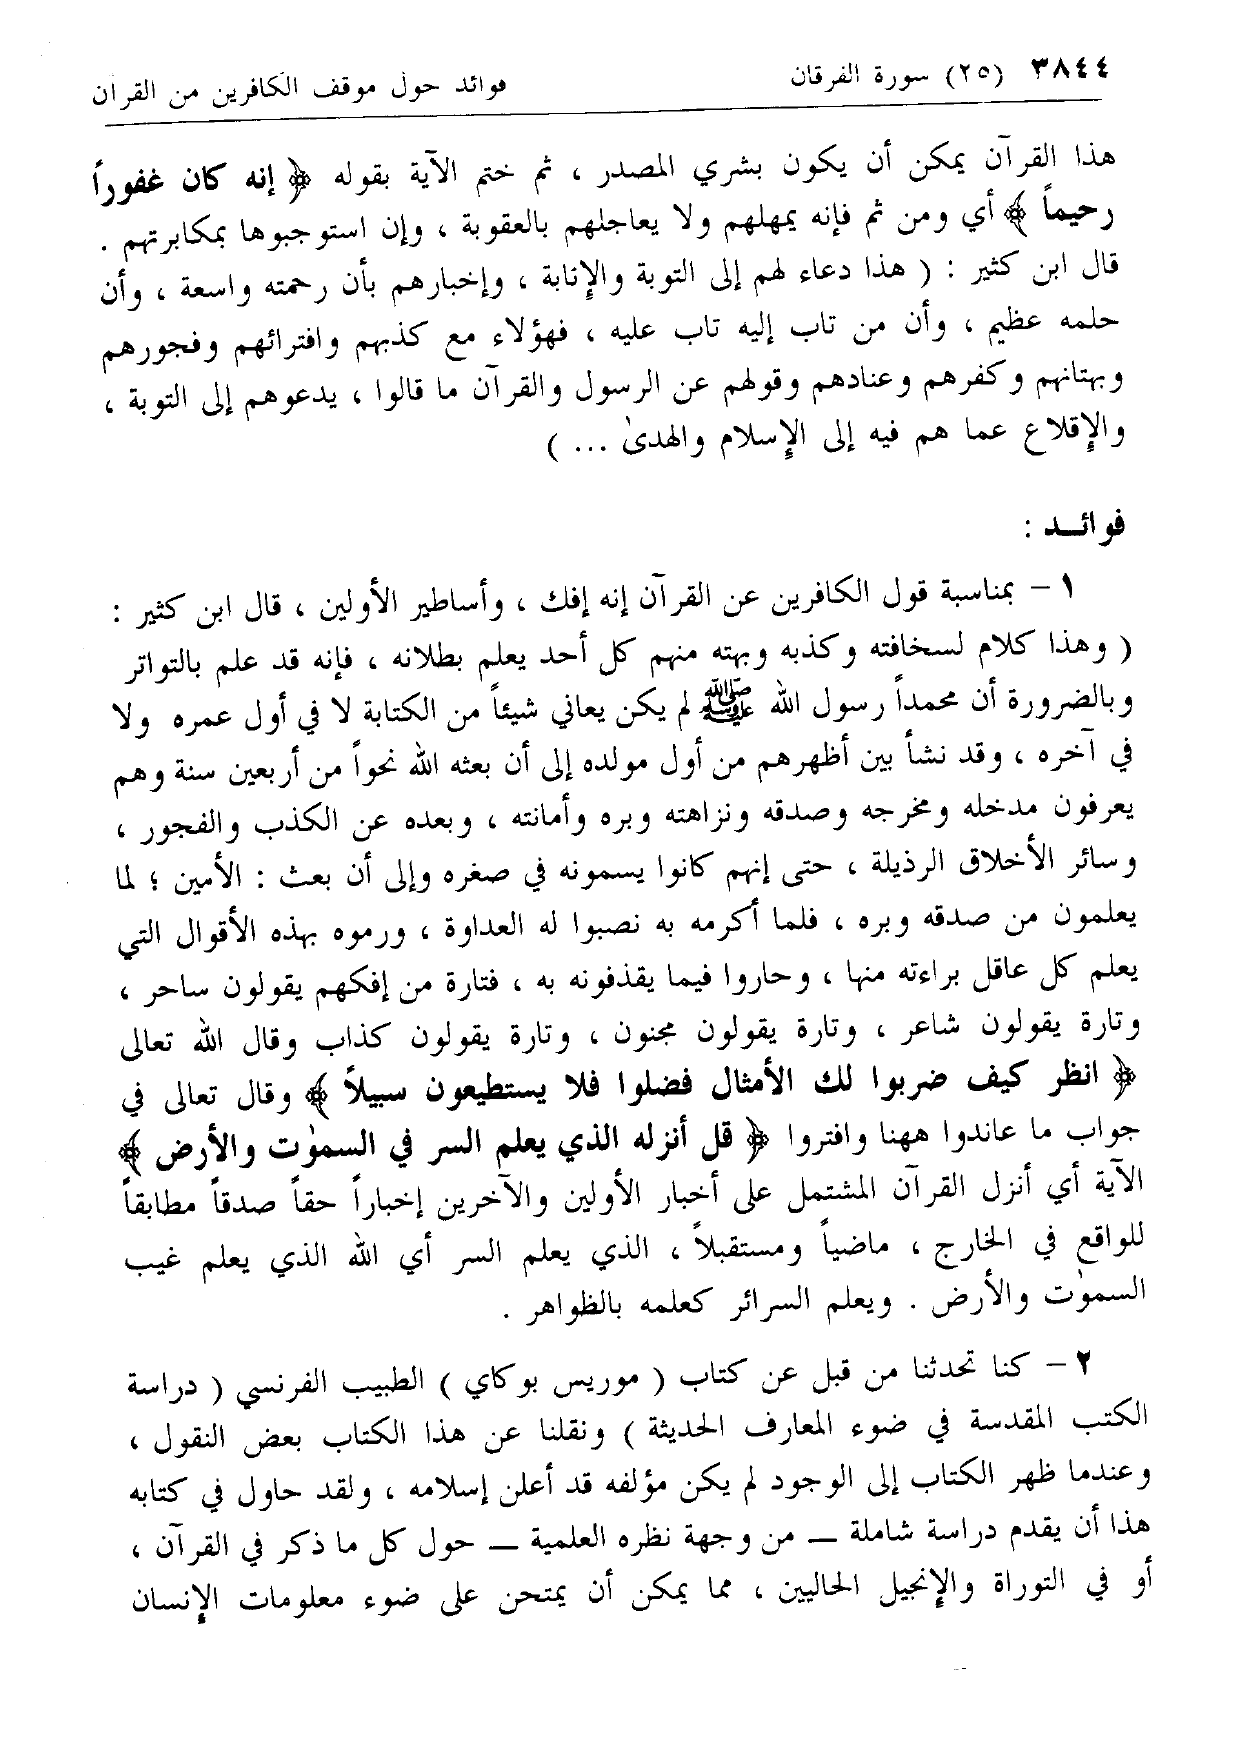 ٣٨٤٤ (٢٥) سورة الفرقان فوائد حول موقف الكافرين من القرآن
هذا القرآن يمكن أن يكون بشري المصدر ، ثم ختم الآية بقوله ﴿ إنه كان غفوراً
رحيماً ﴾ أي ومن ثم فإنه يمهلهم ولا يعاجلهم بالعقوبة ، وإن استوجبوها بمكابرتهم .
قال ابن كثير : ( هذا دعاء لهم إلى التوبة والإنابة ، وإخبارهم بأن رحمته واسعة ، وأن
حلمه عظيم ، وأن من تاب إليه تاب عليه ، فهؤلاء مع كذبهم وافترائهم وفجورهم
وبهتانهم وكفرهم وعنادهم وقولهم عن الرسول والقرآن ما قالوا ، يدعوهم إلى التوبة ،
والإقلاع عما هم فيه إلى الإسلام والهدىٰ ... )
فوائــد :
١ – بمناسبة قول الكافرين عن القرآن إنه إفك ، وأساطير الأولين ، قال ابن كثير :
( وهذا كلام لسخافته وكذبه وبهته منهم كل أحد يعلم بطلانه ، فإنه قد علم بالتواتر
وبالضرورة أن محمداً رسول الله ﷺ لم يكن يعاني شيئاً من الكتابة لا في أول عمره ولا
في آخره ، وقد نشأ بين أظهرهم من أول مولده إلى أن بعثه الله نحواً من أربعين سنة وهم
يعرفون مدخله ومخرجه وصدقه ونزاهته وبره وأمانته ، وبعده عن الكذب والفجور ،
وسائر الأخلاق الرذيلة ، حتى إنهم كانوا يسمونه في صغره وإلى أن بعث : الأمين ؛ لما
يعلمون من صدقه وبره ، فلما أكرمه به نصبوا له العداوة ، ورموه بهذه الأقوال التي
يعلم كل عاقل براءته منها ، وحاروا فيما يقذفونه به ، فتارة من إفكهم يقولون ساحر ،
وتارة يقولون شاعر ، وتارة يقولون مجنون ، وتارة يقولون كذاب وقال الله تعالى
﴿ انظر كيف ضربوا لك الأمثال فضلوا فلا يستطيعون سبيلاً ﴾ وقال تعالى في
جواب ما عاندوا ههنا وافتروا ﴿ قل أنزله الذي يعلم السر في السموٰت والأرض ﴾
الآية أي أنزل القرآن المشتمل على أخبار الأولين والآخرين إخباراً حقاً صدقاً مطابقاً
للواقع في الخارج ، ماضياً ومستقبلاً ، الذي يعلم السر أي الله الذي يعلم غيب
السموٰت والأرض . ويعلم السرائر كعلمه بالظواهر .
٢ – كنا تحدثنا من قبل عن كتاب ( موريس بوكاي ) الطبيب الفرنسي ( دراسة
الكتب المقدسة في ضوء المعارف الحديثة ) ونقلنا عن هذا الكتاب بعض النقول ،
وعندما ظهر الكتاب إلى الوجود لم يكن مؤلفه قد أعلن إسلامه ، ولقد حاول في كتابه
هذا أن يقدم دراسة شاملة – من وجهة نظره العلمية – حول كل ما ذكر في القرآن ،
أو في التوراة والإنجيل الحاليين ، مما يمكن أن يمتحن على ضوء معلومات الإنسان